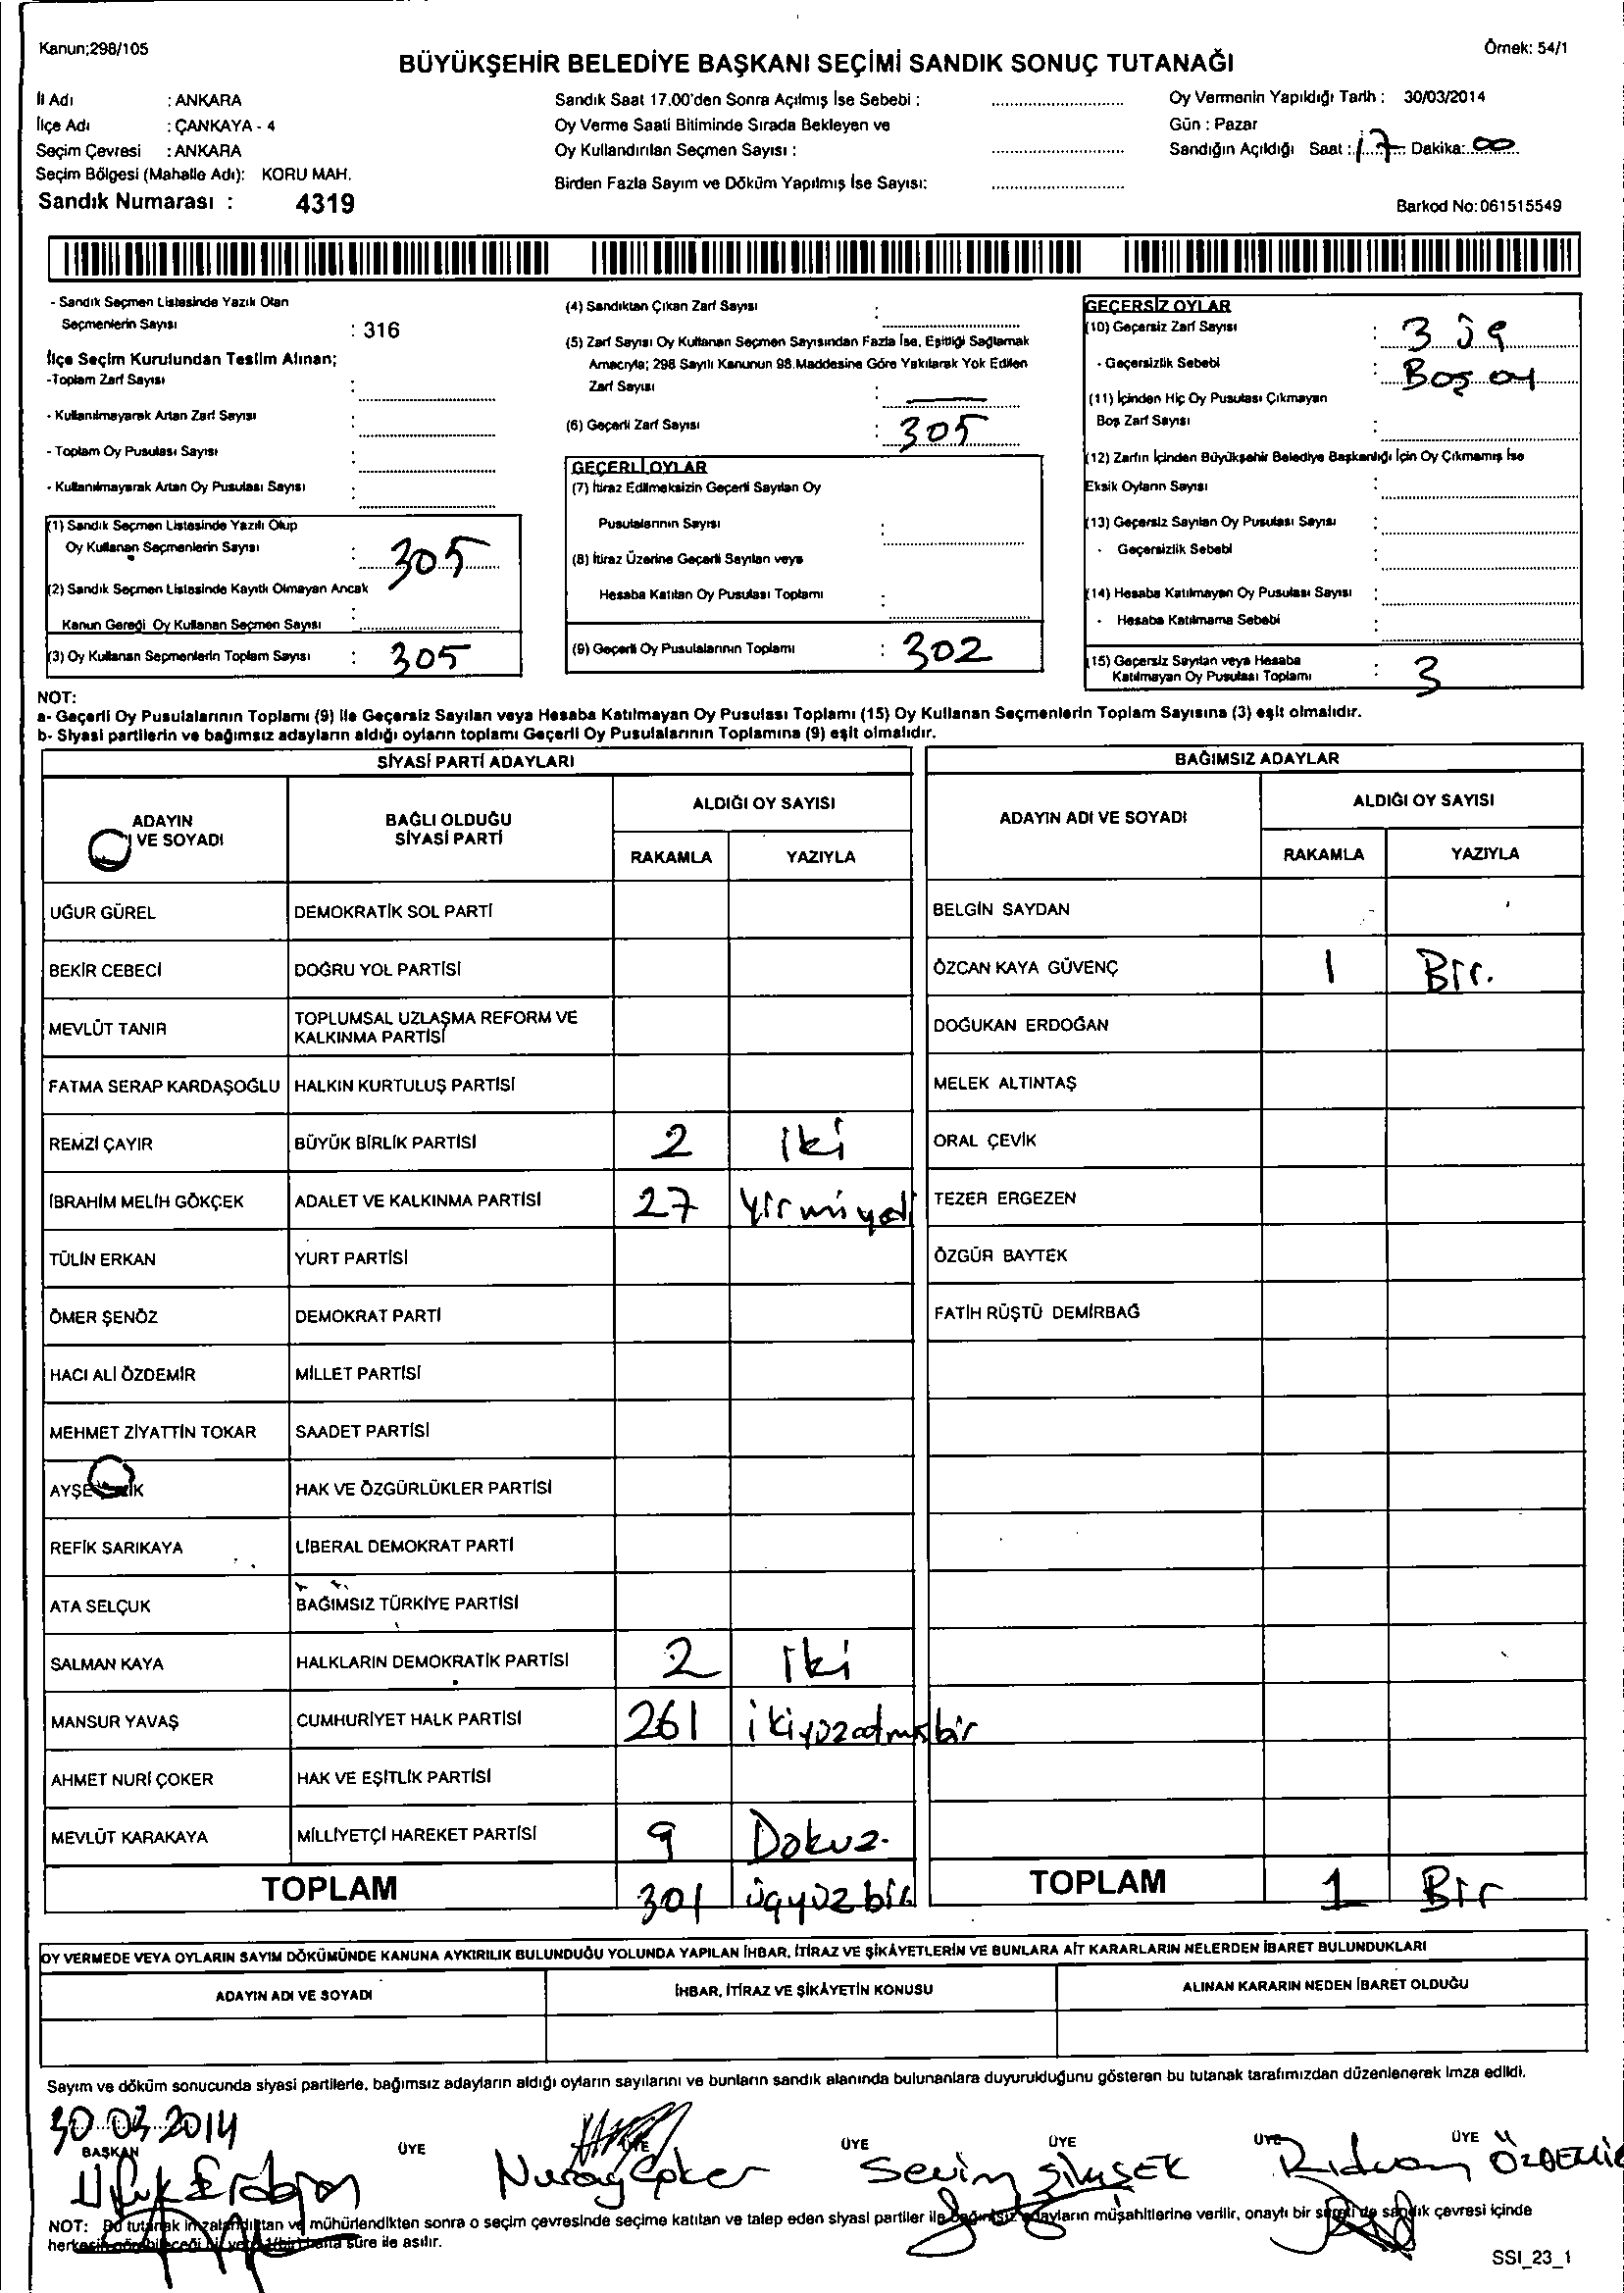 Kanun;298/105
Örnek: 54/1
BÜYÜKŞEHİR BELEDİYE BAŞKANI SEÇİMİ SANDIK SONUÇ TUTANAĞI
İl Adı : ANKARA
İlçe Adı : ÇANKAYA - 4
Seçim Çevresi : ANKARA
Seçim Bölgesi (Mahalle Adı): KORU MAH.
Sandık Numarası : 4319
Sandık Saat 17.00'den Sonra Açılmış İse Sebebi :
Oy Verme Saati Bitiminde Sırada Bekleyen ve
Oy Kullandırılan Seçmen Sayısı :
Birden Fazla Sayım ve Döküm Yapılmış İse Sayısı:
Oy Vermenin Yapıldığı Tarih : 30/03/2014
Gün : Pazar
Sandığın Açıldığı Saat : 17 Dakika: 00
Barkod No:061515549
- Sandık Seçmen Listesinde Yazılı Olan
Seçmenlerin Sayısı : 316
İlçe Seçim Kurulundan Teslim Alınan;
-Toplam Zarf Sayısı :
- Kullanılmayarak Artan Zarf Sayısı :
- Toplam Oy Pusulası Sayısı :
- Kullanılmayarak Artan Oy Pusulası Sayısı :
(1) Sandık Seçmen Listesinde Yazılı Olup
Oy Kullanan Seçmenlerin Sayısı : 305
(2) Sandık Seçmen Listesinde Kayıtlı Olmayan Ancak
Kanun Gereği Oy Kullanan Seçmen Sayısı :
(3) Oy Kullanan Seçmenlerin Toplam Sayısı : 305
(4) Sandıktan Çıkan Zarf Sayısı :
(5) Zarf Sayısı Oy Kullanan Seçmen Sayısından Fazla İse, Eşitliği Sağlamak
Amacıyla; 298 Sayılı Kanunun 98.Maddesine Göre Yakılarak Yok Edilen
Zarf Sayısı : —
(6) Geçerli Zarf Sayısı : 305
GEÇERLİ OYLAR
(7) İtiraz Edilmeksizin Geçerli Sayılan Oy
Pusulalarının Sayısı :
(8) İtiraz Üzerine Geçerli Sayılan veya
Hesaba Katılan Oy Pusulası Toplamı :
(9) Geçerli Oy Pusulalarının Toplamı : 302
GEÇERSİZ OYLAR
(10) Geçersiz Zarf Sayısı : 3 üç
- Geçersizlik Sebebi : Boş oy
(11) İçinden Hiç Oy Pusulası Çıkmayan
Boş Zarf Sayısı :
(12) Zarfın İçinden Büyükşehir Belediye Başkanlığı İçin Oy Çıkmamış İse
Eksik Oyların Sayısı :
(13) Geçersiz Sayılan Oy Pusulası Sayısı :
- Geçersizlik Sebebi :
(14) Hesaba Katılmayan Oy Pusulası Sayısı :
- Hesaba Katılmama Sebebi :
(15) Geçersiz Sayılan veya Hesaba
Katılmayan Oy Pusulası Toplamı : 3
NOT:
a- Geçerli Oy Pusulalarının Toplamı (9) ile Geçersiz Sayılan veya Hesaba Katılmayan Oy Pusulası Toplamı (15) Oy Kullanan Seçmenlerin Toplam Sayısına (3) eşit olmalıdır.
b- Siyasi partilerin ve bağımsız adayların aldığı oyların toplamı Geçerli Oy Pusulalarının Toplamına (9) eşit olmalıdır.
SİYASİ PARTİ ADAYLARI
ADAYIN
VE SOYADI
BAĞLI OLDUĞU
SİYASİ PARTİ
ALDIĞI OY SAYISI
RAKAMLA YAZIYLA
UĞUR GÜREL DEMOKRATİK SOL PARTİ
BEKİR CEBECİ DOĞRU YOL PARTİSİ
MEVLÜT TANIR TOPLUMSAL UZLAŞMA REFORM VE
KALKINMA PARTİSİ
FATMA SERAP KARDAŞOĞLU HALKIN KURTULUŞ PARTİSİ
REMZİ ÇAYIR BÜYÜK BİRLİK PARTİSİ 2 iki
İBRAHİM MELİH GÖKÇEK ADALET VE KALKINMA PARTİSİ 27 Yirmiyedi
TÜLİN ERKAN YURT PARTİSİ
ÖMER ŞENÖZ DEMOKRAT PARTİ
HACI ALİ ÖZDEMİR MİLLET PARTİSİ
MEHMET ZİYATTİN TOKAR SAADET PARTİSİ
AYŞE HAK VE ÖZGÜRLÜKLER PARTİSİ
REFİK SARIKAYA LİBERAL DEMOKRAT PARTİ
ATA SELÇUK BAĞIMSIZ TÜRKİYE PARTİSİ
SALMAN KAYA HALKLARIN DEMOKRATİK PARTİSİ 2 iki
MANSUR YAVAŞ CUMHURİYET HALK PARTİSİ 261 ikiyüzatmışbir
AHMET NURİ ÇOKER HAK VE EŞİTLİK PARTİSİ
MEVLÜT KARAKAYA MİLLİYETÇİ HAREKET PARTİSİ 9 Dokuz.
TOPLAM 301 üçyüzbir
BAĞIMSIZ ADAYLAR
ADAYIN ADI VE SOYADI
ALDIĞI OY SAYISI
RAKAMLA YAZIYLA
BELGİN SAYDAN
ÖZCAN KAYA GÜVENÇ 1 Bir.
DOĞUKAN ERDOĞAN
MELEK ALTINTAŞ
ORAL ÇEVİK
TEZER ERGEZEN
ÖZGÜR BAYTEK
FATİH RÜŞTÜ DEMİRBAĞ
TOPLAM 1 Bir
OY VERMEDE VEYA OYLARIN SAYIM DÖKÜMÜNDE KANUNA AYKIRILIK BULUNDUĞU YOLUNDA YAPILAN İHBAR, İTİRAZ VE ŞİKÂYETLERİN VE BUNLARA AİT KARARLARIN NELERDEN İBARET BULUNDUKLARI
ADAYIN ADI VE SOYADI
İHBAR, İTİRAZ VE ŞİKÂYETİN KONUSU
ALINAN KARARIN NEDEN İBARET OLDUĞU
Sayım ve döküm sonucunda siyasi partilerle, bağımsız adayların aldığı oyların sayılarını ve bunların sandık alanında bulunanlara duyurulduğunu gösteren bu tutanak tarafımızdan düzenlenerek imza edildi.
30.03.2014
BAŞKAN ÜYE ÜYE ÜYE ÜYE ÜYE ÜYE
Nuray Sevim ŞİMŞEK Rıdvan ÖZDEMİR
NOT: Bu tutanak imzalandıktan ve mühürlendikten sonra o seçim çevresinde seçime katılan ve talep eden siyasi partiler ile bağımsız adayların müşahitlerine verilir, onaylı bir sureti de sandık çevresi içinde
herkesin görebileceği bir yere 1(bir) hafta süre ile asılır.
SSI_23_1